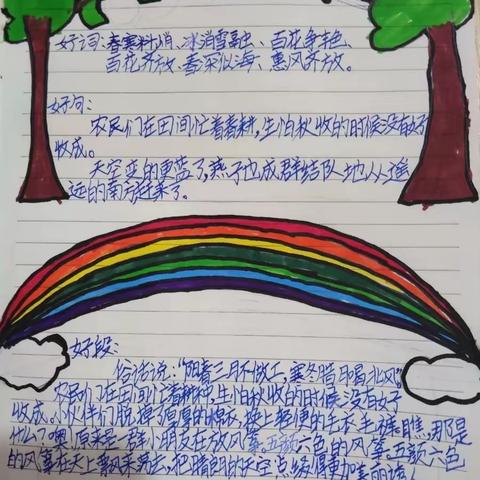 好词:春寒料峭、冰消雪融、百花争艳
百花齐放、春深似海、惠风齐放。
好句:
农民们在田间忙着春耕,生怕秋收的时候没有好
收成。
天空变的更蓝了,燕子也成群结队地从遥
远的南方赶来了。
好段:
俗话说:"阳春三月不做工,寒冬腊月喝北风"。
农民们在田间忙着耕种,生怕秋收的时候没有好
收成。小伙伴们脱掉了厚厚的棉衣,换上轻便的毛衣毛裤。瞧,那是
什么?噢,原来是一群小朋友在放风筝。五颜六色的风筝。五颜六色
的风筝在天上飘来荡去,把晴朗的天空点缀得更加美丽。